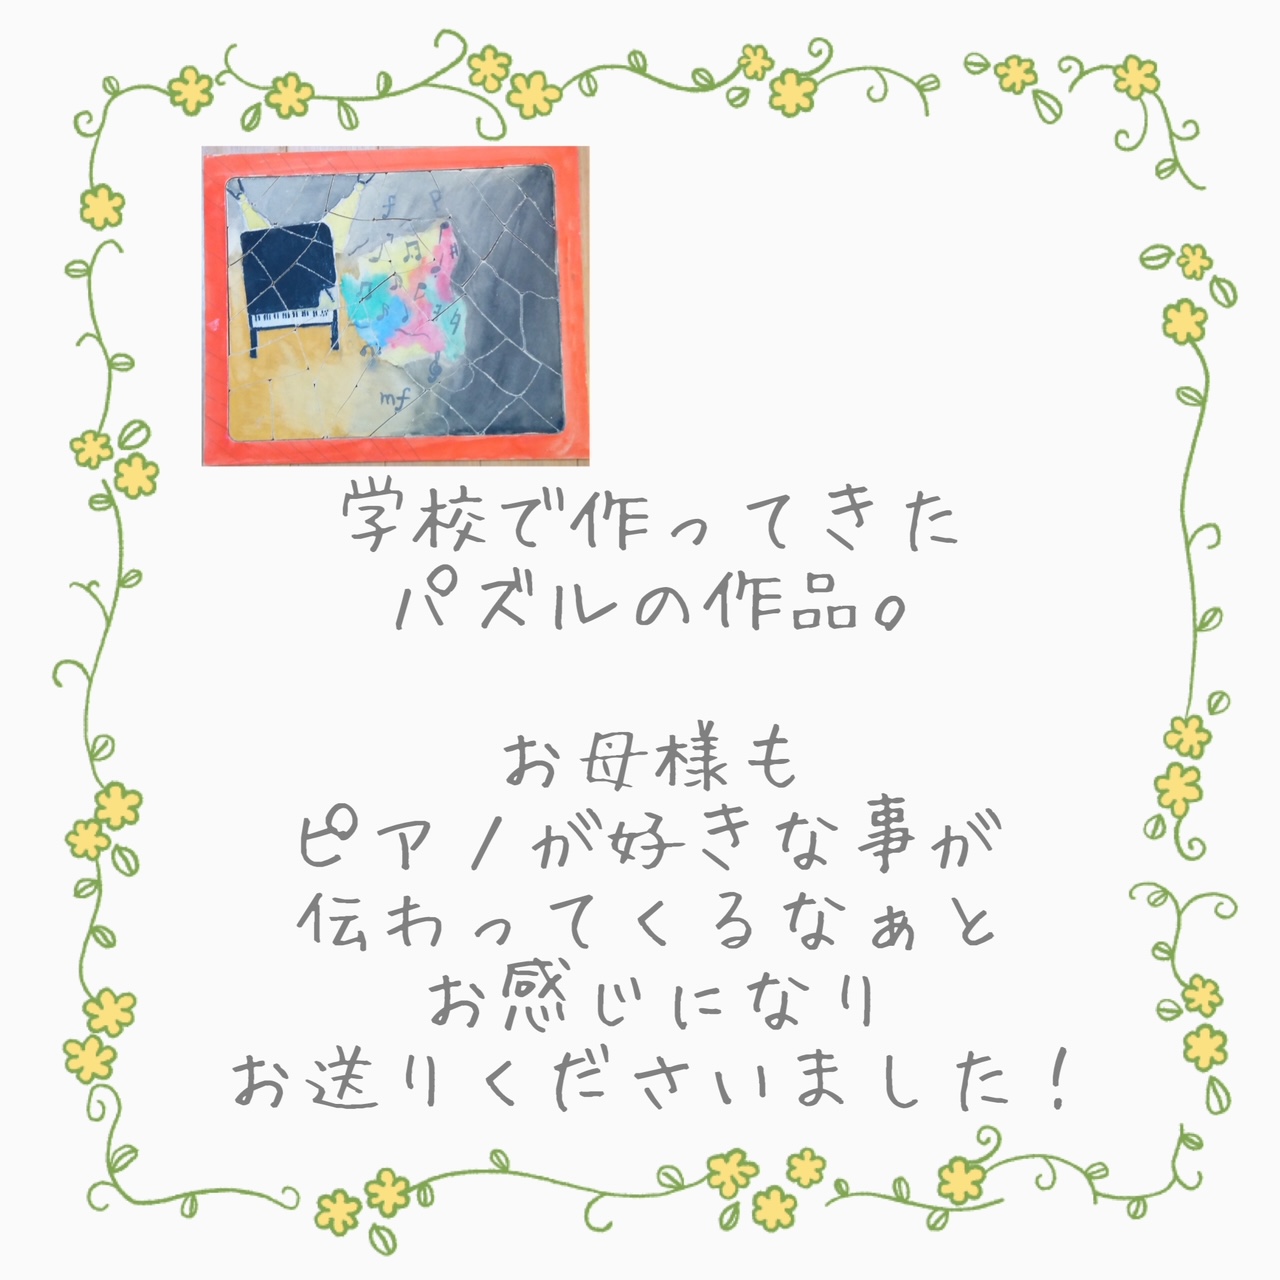 f
p
mf
学校で作ってきた
パズルの作品。
お母様も
ピアノが好きな事が
伝わってくるなぁと
お感じになり
お送りくださいました！